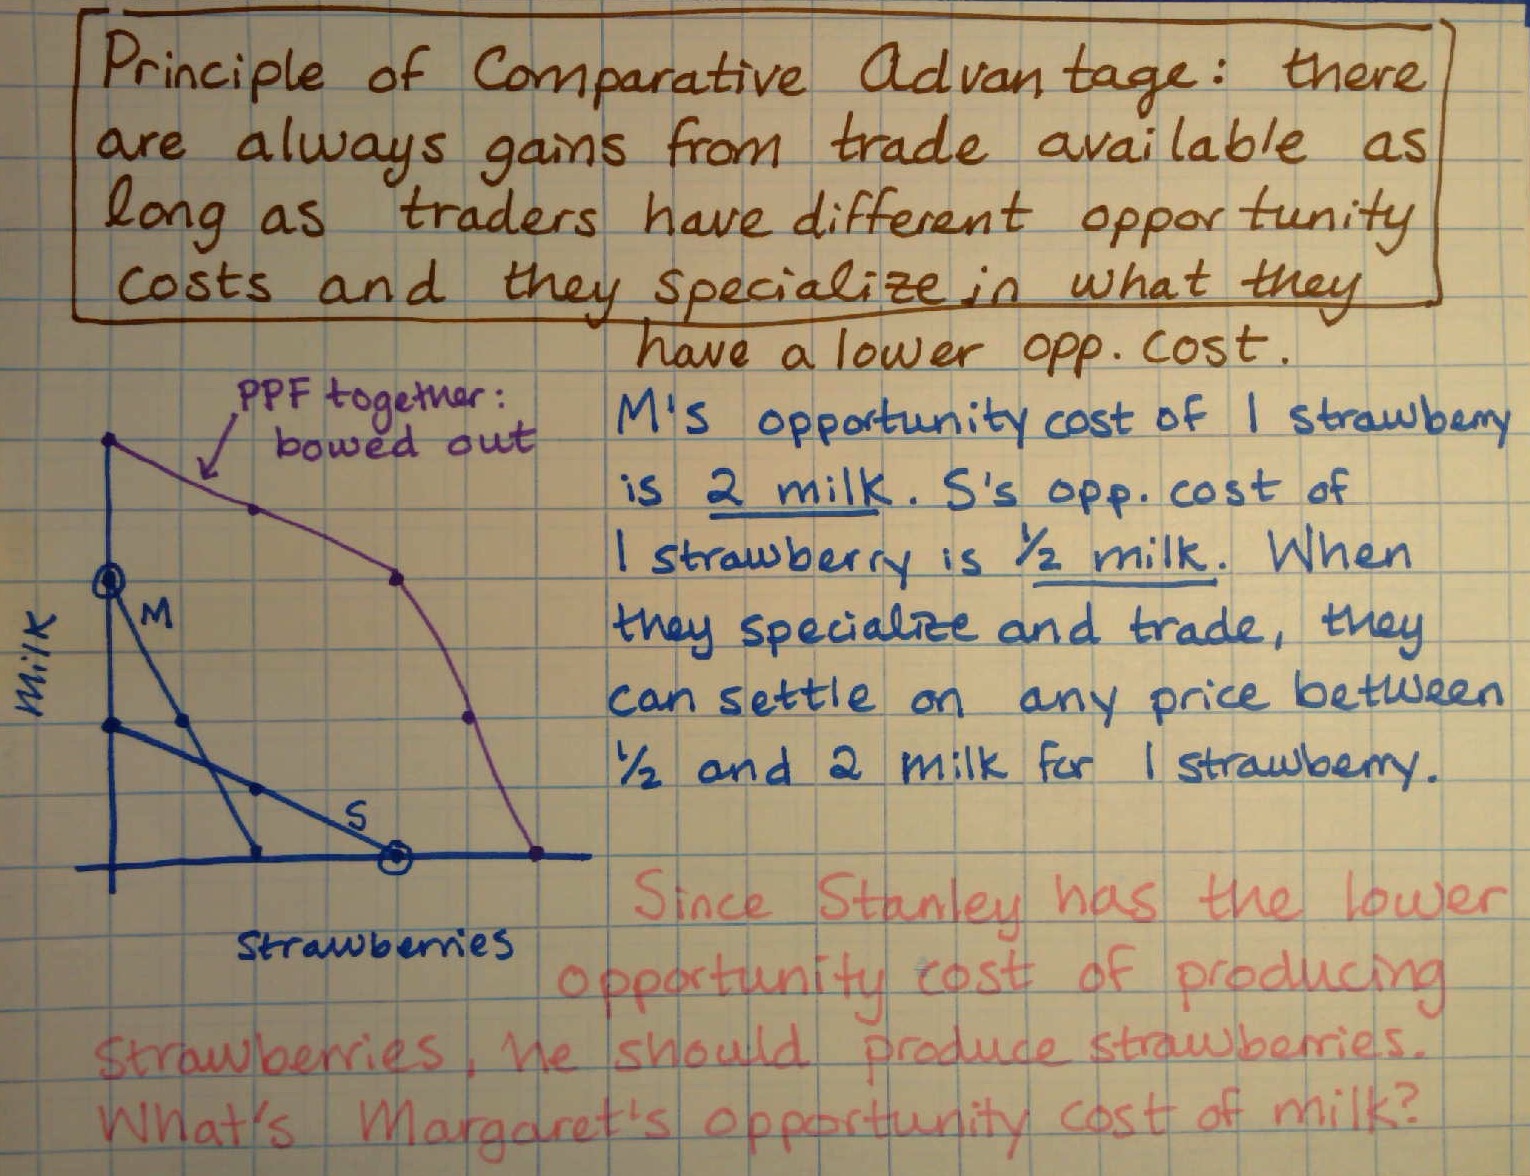 Principle of Comparative Advantage: there
are always gains from trade available as
long as traders have different opportunity
costs and they specialize in what they
have a lower opp. cost.
PPF together:
bowed out
M's opportunity cost of 1 strawberry
is 2 milk. S's opp. cost of
1 strawberry is ½ milk. When
they specialize and trade, they
can settle on any price between
½ and 2 milk for 1 strawberry.
Milk
M
S
Strawberries
Since Stanley has the lower
opportunity cost of producing
strawberries, he should produce strawberries.
What's Margaret's opportunity cost of milk?